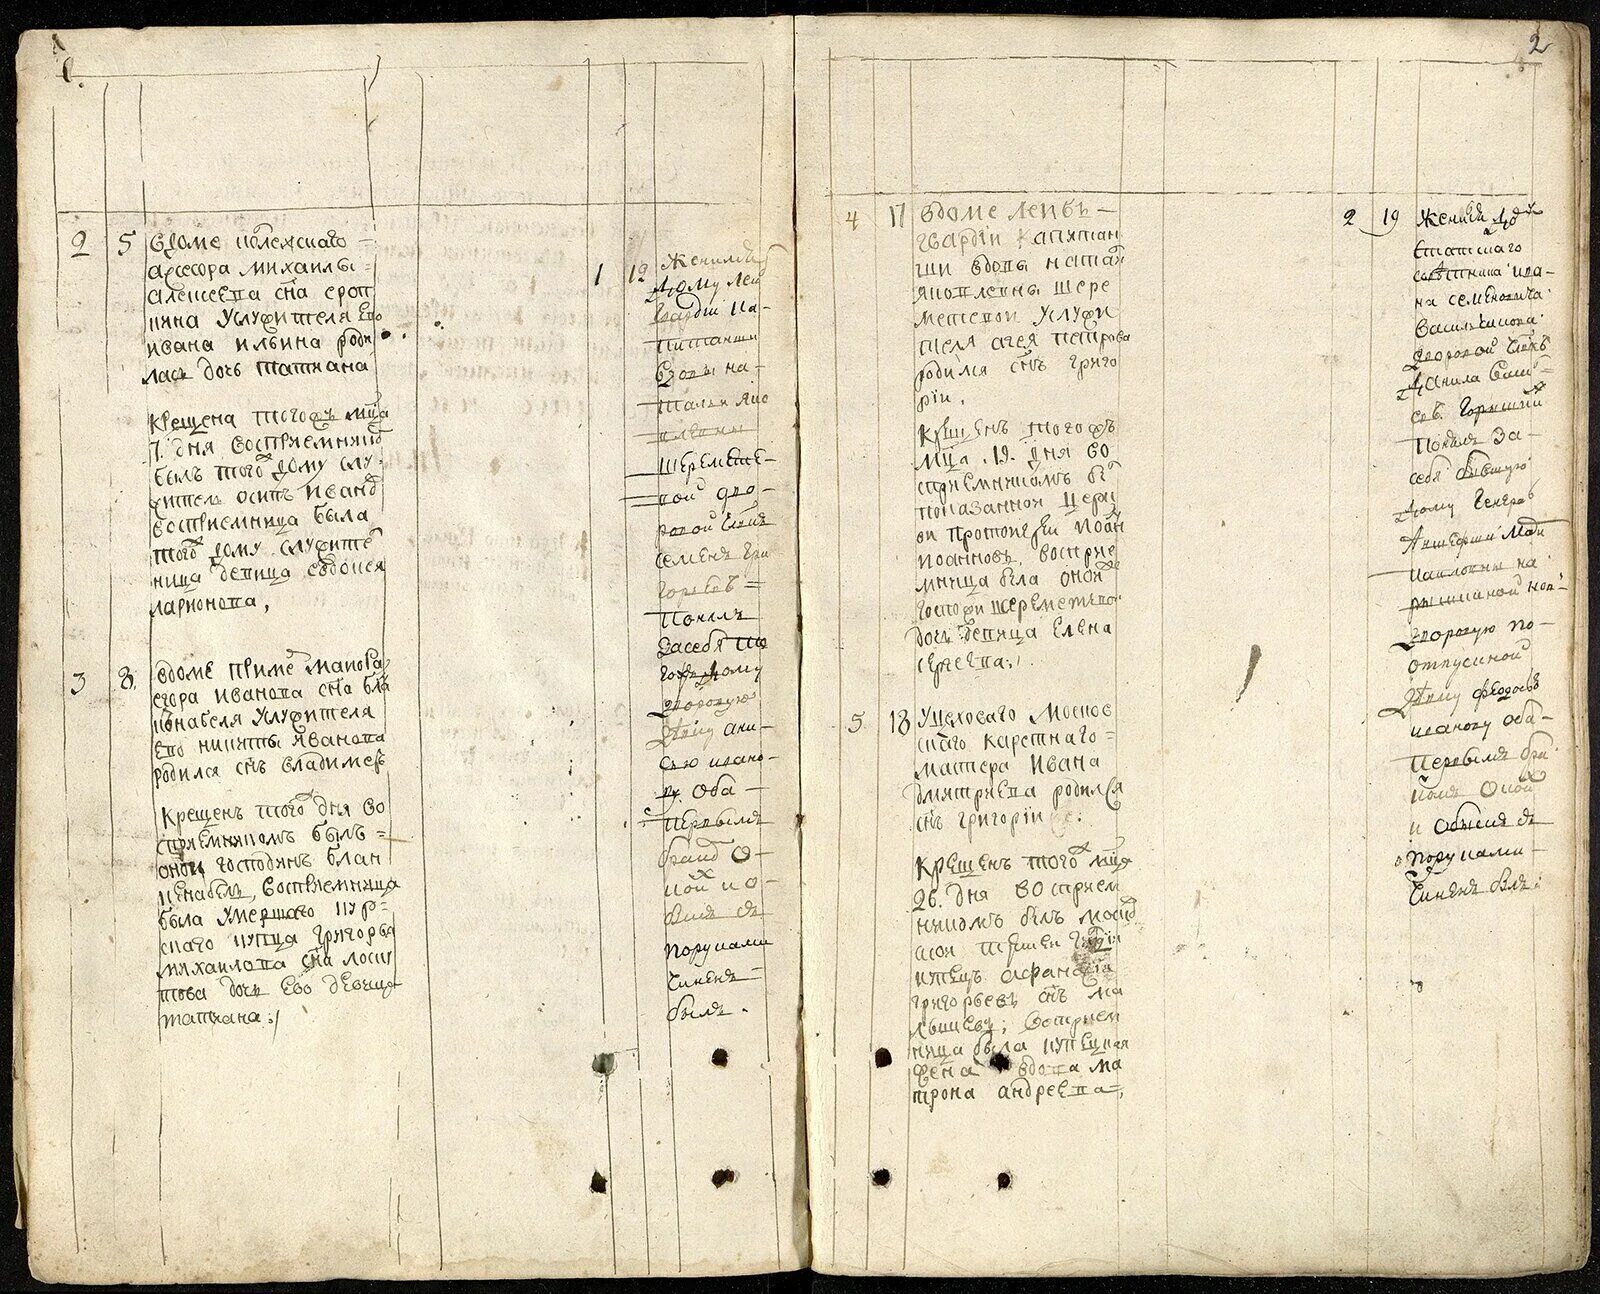 2 5 вдоме колежскаго
асесора михаилы
алексеева сна ероп
кина услужителя ево
ивана ильина роди
лась дочь татиана
крещена тогожъ мца
7. дня восприемникъ
былъ того дому слу
житель осипъ иванъ
восприемница была
того дому служите
ница девица евдокея
ларионова,
3 8. вдоме примеръ маиора
егора иванова сна бла
нкнагеля услужителя
ево никиты иванова
родился снъ владимеръ
крещенъ того дня во
сприемникомъ былъ
оной господинъ блан
кенагель, восприемница
была умершаго кур
скаго купца григорья
михаилова сна лоски
това дочь ево девица
татиана
1 12 женился
дому лей
гвардіи ка
питанши
вдовы на
тальи яко
влевны
шеремете
вой дво
ровой члвкъ
семенъ гри
горьевъ
понялъ
засебя то
гожъ дому
дворовую
девку ани
сью ивано
ву. оба
первымъ
бракомъ о
ной и о
быскъ съ
поруками
чиненъ
былъ.
2
4 17 вдоме лейбъ
гвардіи капитан
ши вдовы натал
яковлевны шере
метевой услужи
теля агея петрова
родился снъ григо
рій.
крещенъ тогожъ
мца .19. дня во
сприемникомъ бы
показанной церкв
ои протопепъ иоан
иоанновъ, восприе
мница была оной
госпожи шереметьевой
дочь девица елена
сергеева
5 18 уцеховаго москов
скаго каретнаго
мастера ивана
дмитриева родился
снъ григории
крещенъ того мца
26. дня восприем
никомъ былъ москов
ской
купецъ афанасіи
григорьевъ снъ ма
лышевъ; восприем
ница была купецкая
жена вдова ма
трона андреева,
2 19 женился до
статскаго
советника ива
на семеновича
василчикова
дворовой члвкъ
данила васил
евъ
понялъ за
себя бывшую
дому генералъ
аншефши марьи
павловны на
рышкиной
дворовую по
отпускной
девку федосью
иванову оба
первымъ бра
комъ о ной
и обыскъ съ
поруками
чиненъ былъ